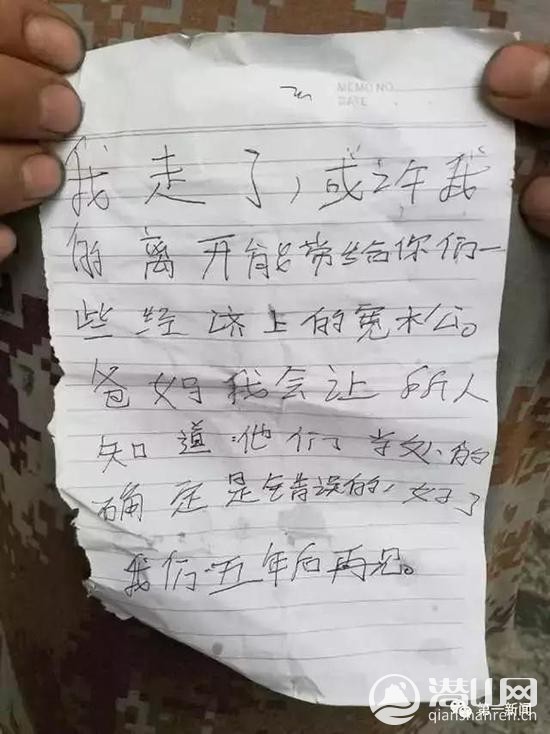 MEMO NO.
DATE
我走了，或许我
的离开能带给你们一
些经济上的宽松。
爸妈我会让所人
知道他们学校的
确定是错误的，好了
我们五年后再见。
潜山网
第一新闻
qianshanren.ch